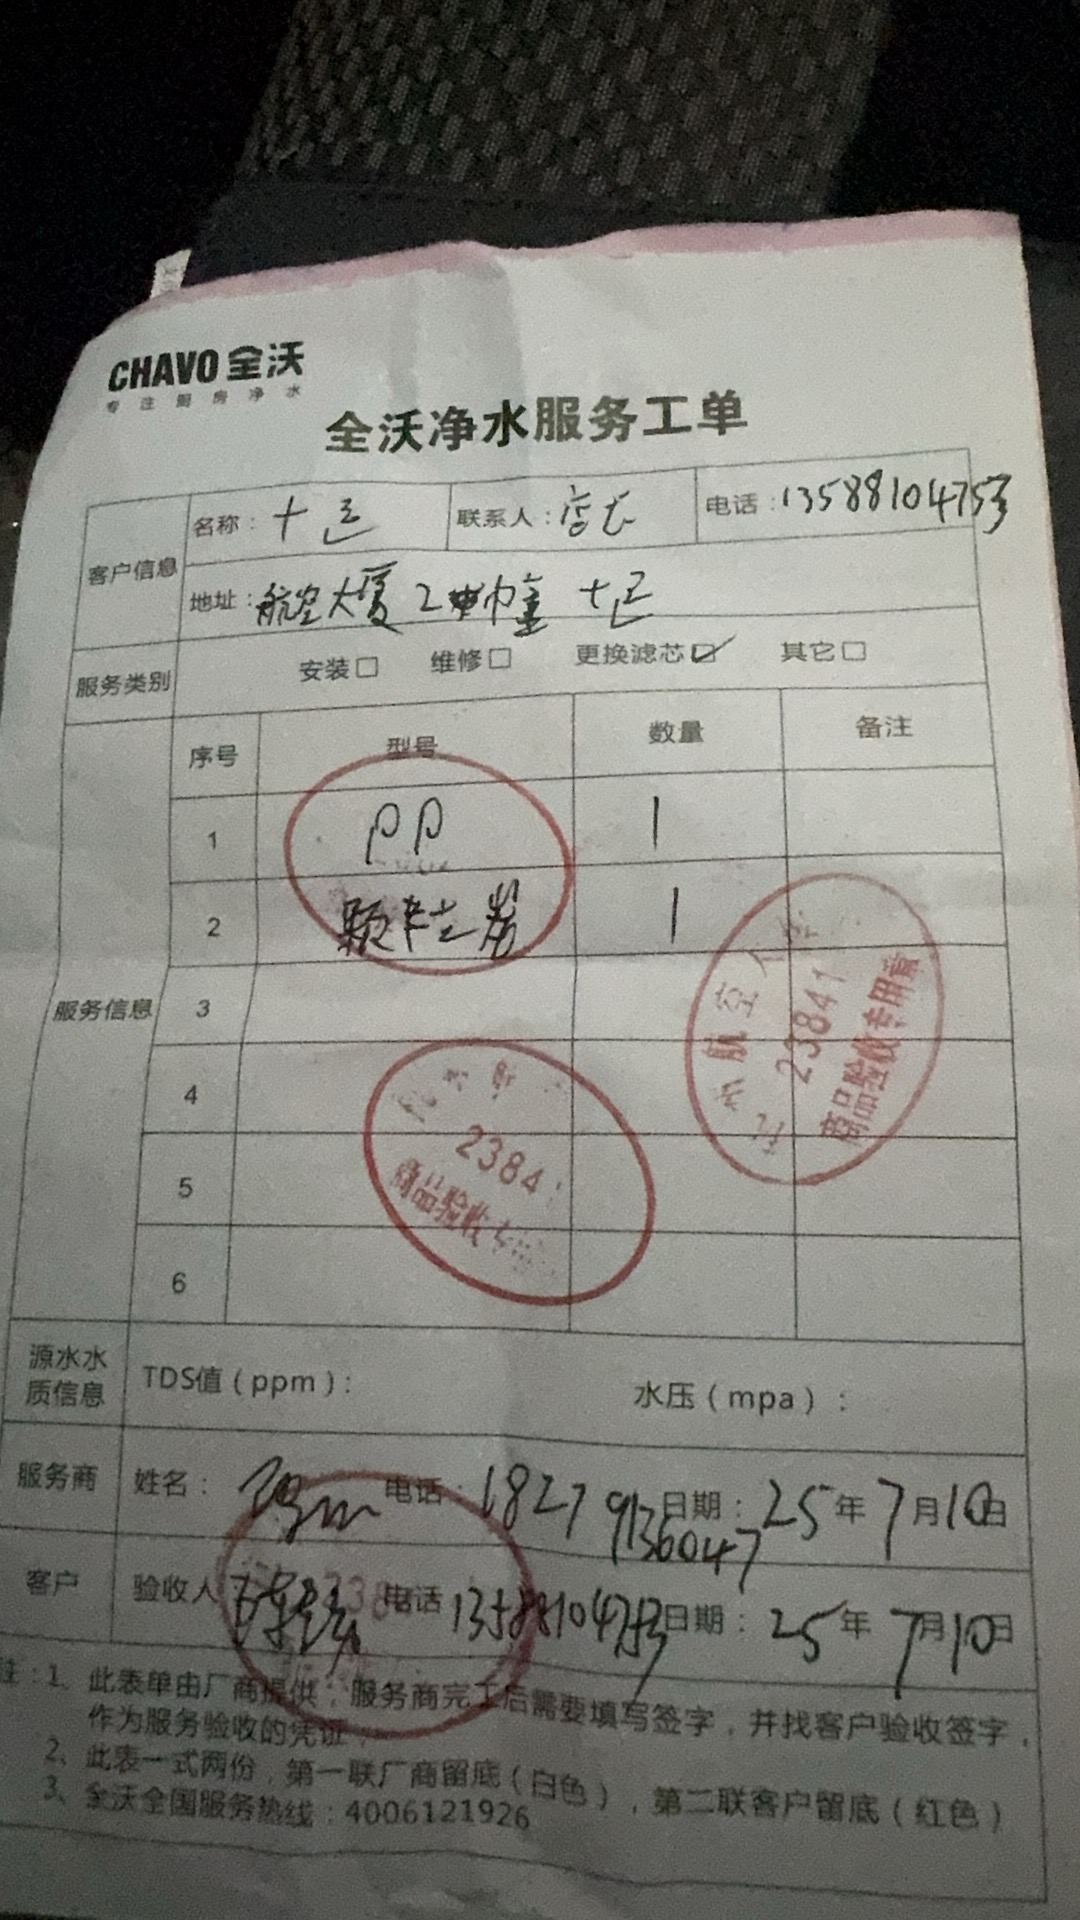 CHAVO 全沃
专注厨房净水
全沃净水服务工单
客户信息 名称: 十足 联系人: 店长 电话: 13588104753
地址: 航空大厦 2 十足
服务类别 安装□ 维修□ 更换滤芯☑ 其它□
服务信息 序号 型号 数量 备注
1 PP 1
2 颗粒炭 1
3
4
5
6
23841
商品验收专用章
2384
商品验收专
源水水质信息 TDS值(ppm): 水压(mpa):
服务商 姓名: 电话: 18279136047 日期: 25年7月10日
客户 验收人 电话 13588104753 日期: 25年7月10日
注:1、此表单由厂商提供,服务商完工后需要填写签字,并找客户验收签字,
作为服务验收的凭证
2、此表一式两份,第一联厂商留底(白色),第二联客户留底(红色)
3、全沃全国服务热线:4006121926